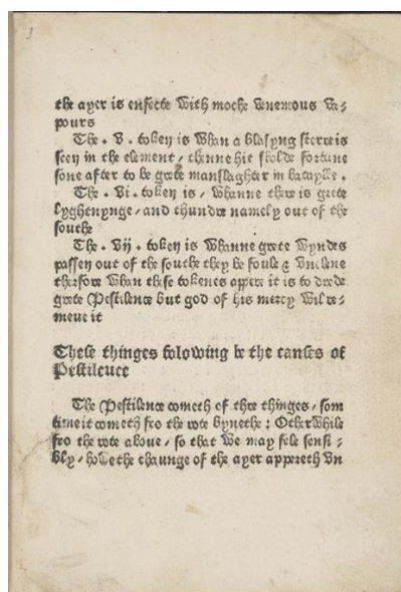 the ayer is enfecte with moche venemous va-
pours
The . v . tokey is whan a blasyng sterre is
seey in the element / thanne hit sholde fortune
sone after to be grete manslaghter in bataylle .
The . vi . tokey is / whanne there is grete
lyghtnynge / and thundre namely out of the
southe
The . vij . tokey is whanne grete wyndes
passey out of the southe they be foule & vnclene
therfore whan these tokenes appere it is to drede
grete Pestilence but god of his mercy wil re-
meue it
These thinges folowing be the causes of
Pestilence
The Pestilence cometh of thre thinges / som
time it cometh fro the rote bynethe : Otherwhile
fro the rote above / so that we may fele sensi :
bly / howe the chaunge of the ayer appereth vn